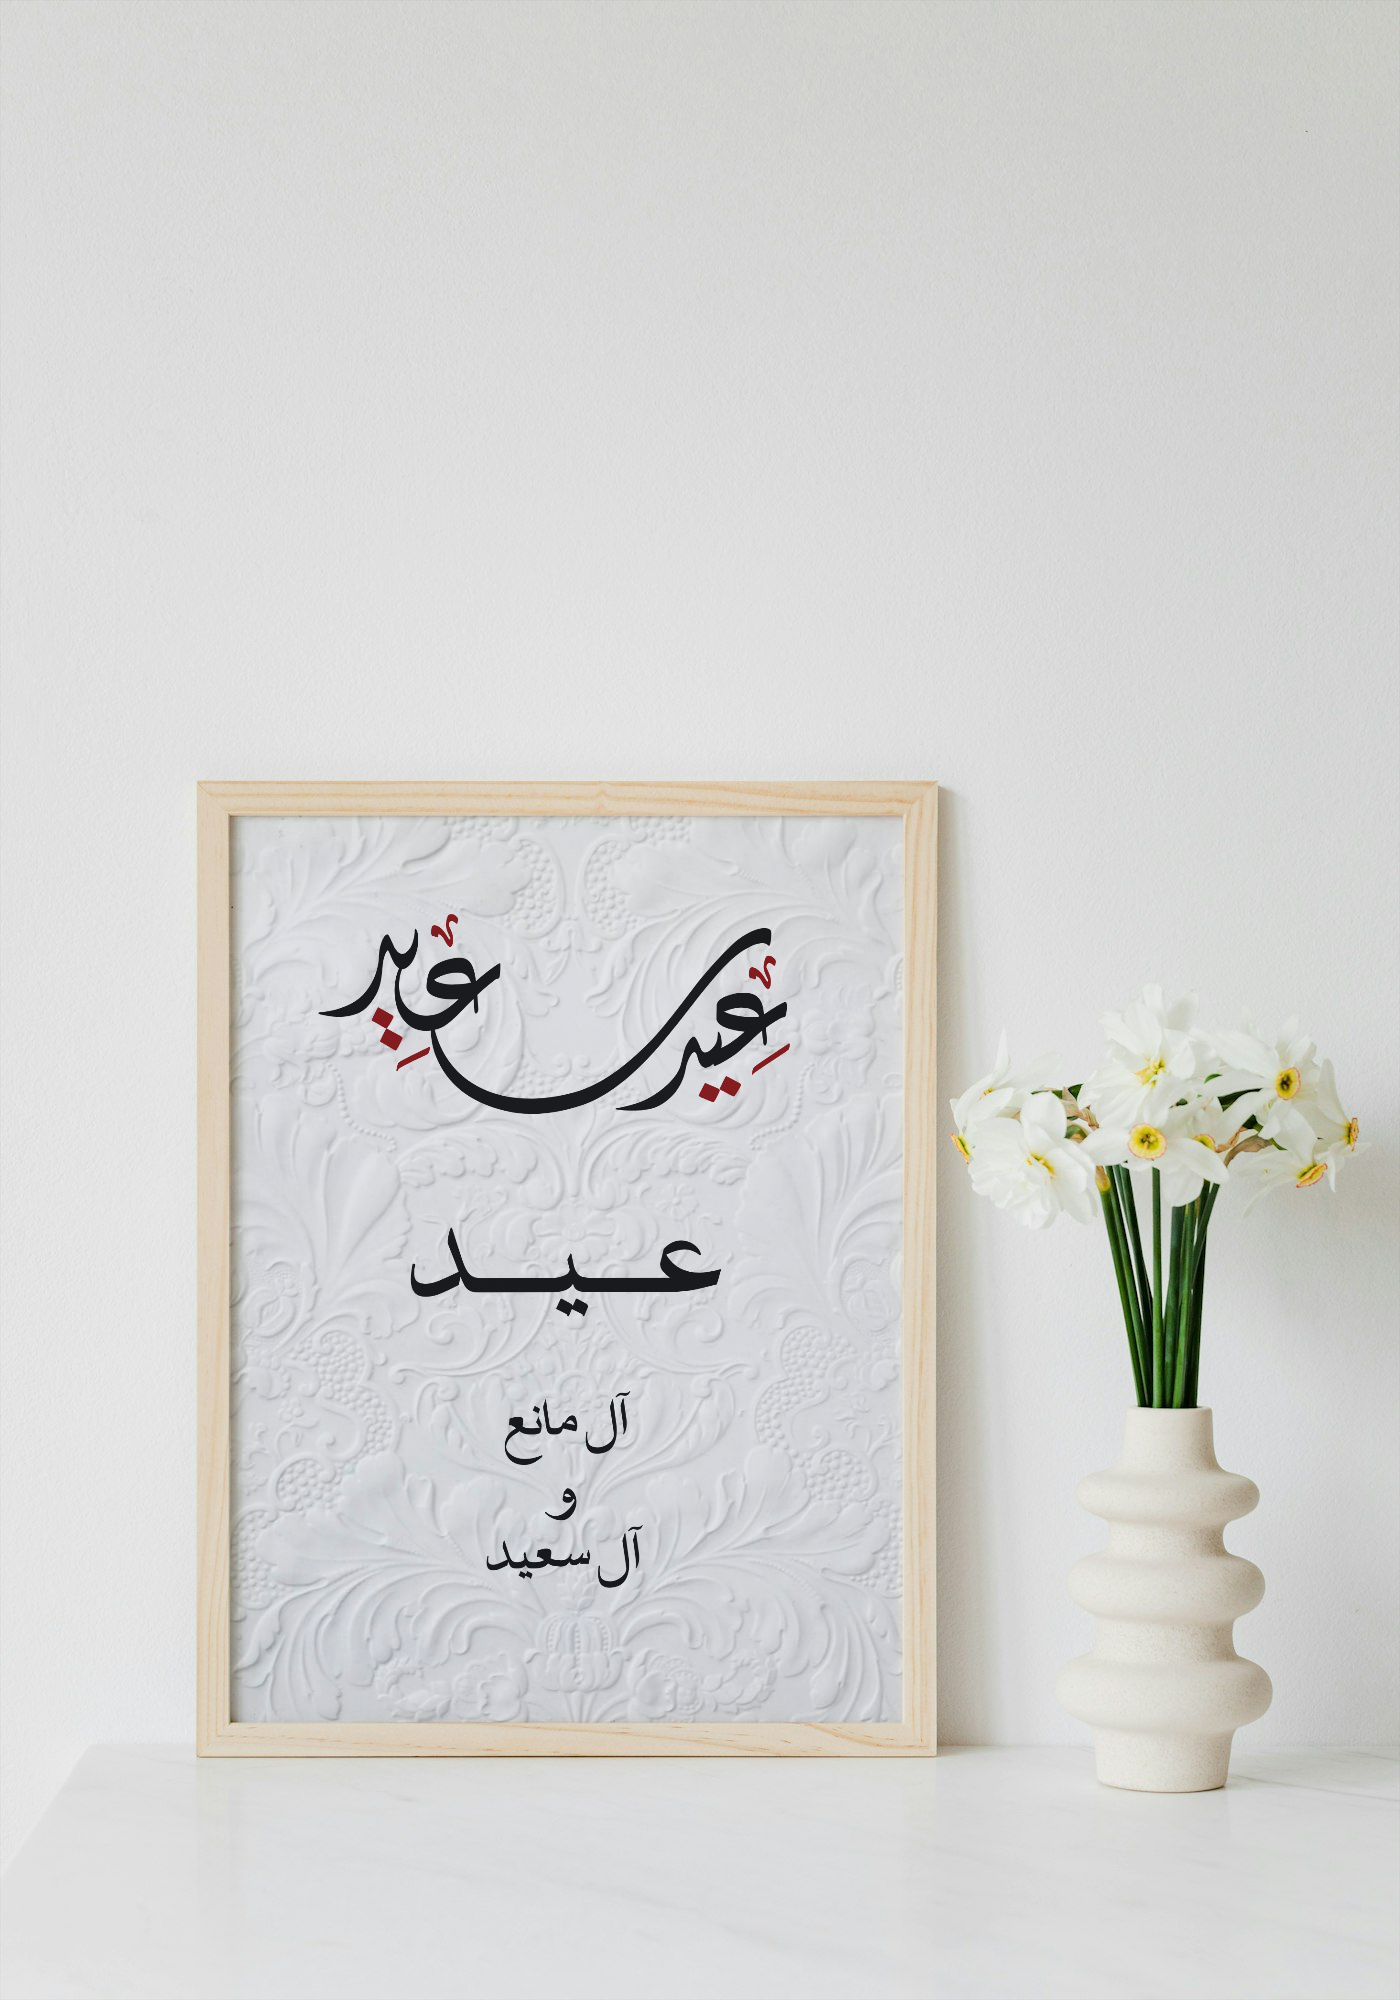 عِيد سعِيد
عيـــد
آل مانع
و
آل سعيد